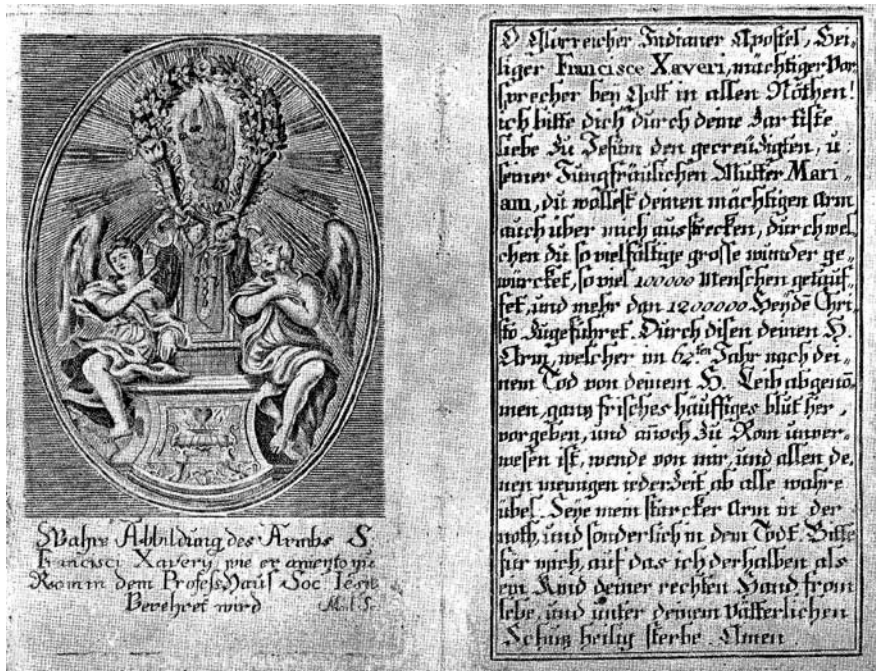 Wahre Abbildung des Armbs S.
Francisci Xavery, wie er annoch zu
Rom in dem Profeß Hauß Soc. Iesu
Verehret wird
O Glorreicher Indianer Apostel, Hei-
liger Francisce Xaveri, mächtiger Vor
sprecher bey Gott in allen Nöthen!
ich bitte dich durch deine zartiste
liebe zu Jesum den gecreuzigten, u.
seiner Jungfräulichen Mutter Mari-
am, du wöllest deinen mächtigen Arm
auch über mich ausstrecken, durch wel,
chen du so vielfältige grosse wunder ge-
würcket, so viel 100000 Menschen getauf-
fet, und mehr dan 1200000 Heydē Chri,
sto zugeführet. Durch disen deinen H.
Arm, welcher im 62.ten Jahr nach dei-
nem Tod von deinem H. Leib abgenō-
men, ganz frisches häuffiges blut her,
vorgeben, und añoch zu Rom unver-
wesen ist, wende von mir, und allen de,
nen meinigen iederzeit ab alle wahre
übel. Seye mein starcker Arm in der
noth, und sonderlich in dem Todt. Bitte
für mich, auf das ich derhalben als
ein Kind deiner rechten Hand from
lebe, und unter deinem Vätterlichen
Schuz heilig sterbe. Amen